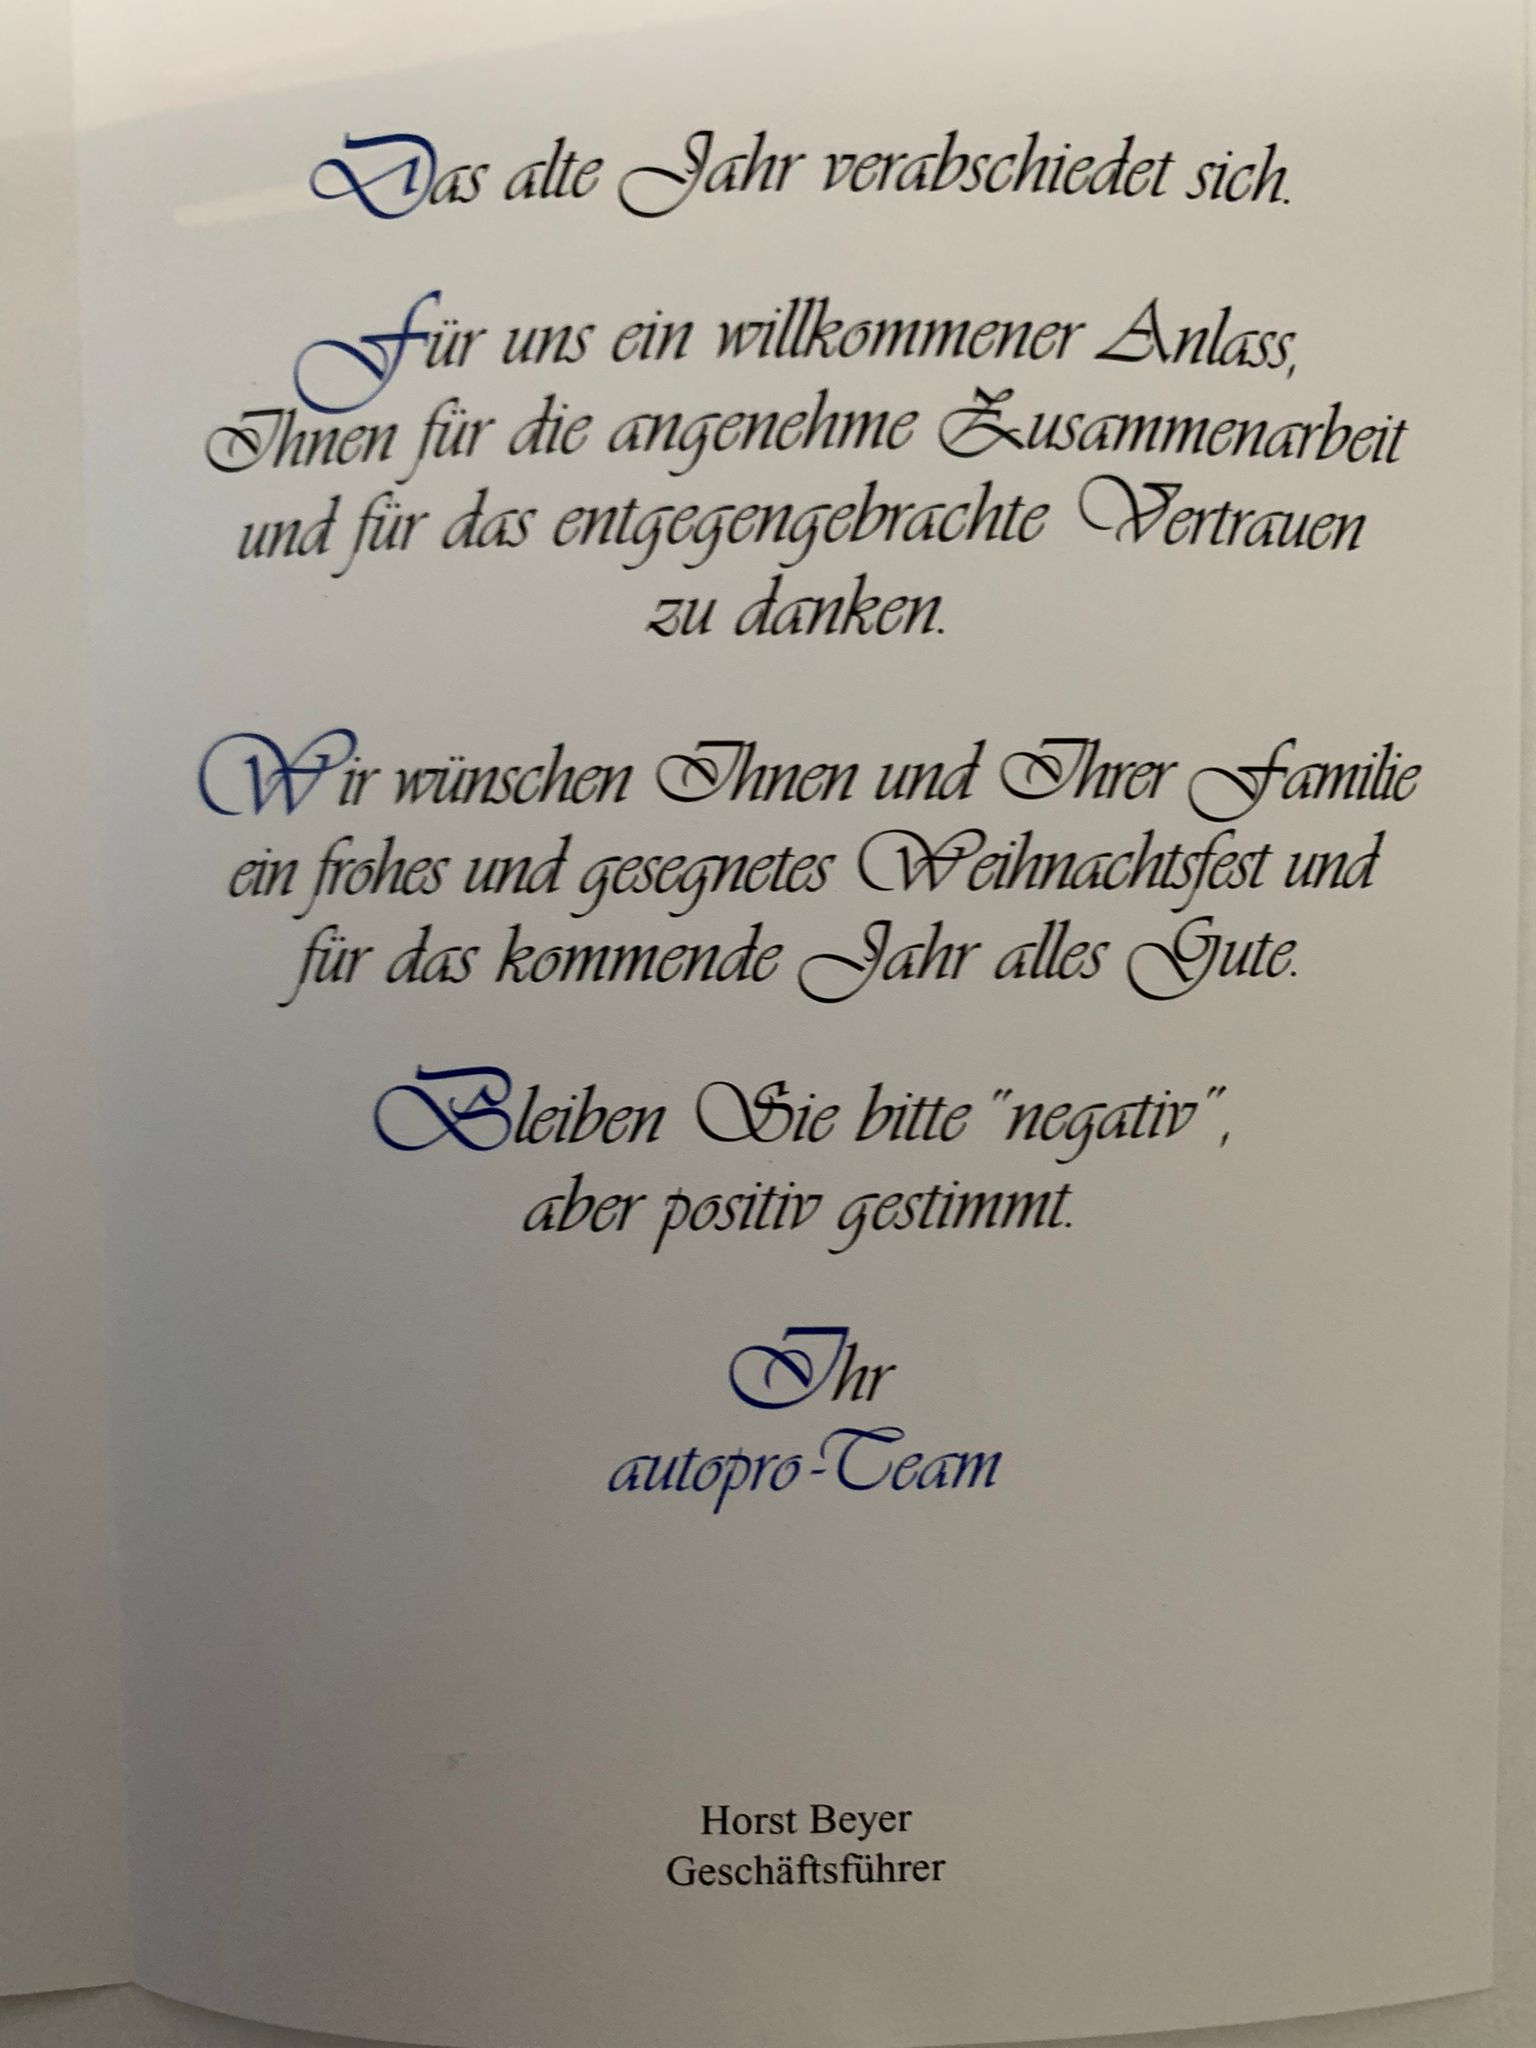 Das alte Jahr verabschiedet sich.
Für uns ein willkommener Anlass,
Ihnen für die angenehme Zusammenarbeit
und für das entgegengebrachte Vertrauen
zu danken.
Wir wünschen Ihnen und Ihrer Familie
ein frohes und gesegnetes Weihnachtsfest und
für das kommende Jahr alles Gute.
Bleiben Sie bitte "negativ",
aber positiv gestimmt.
Ihr
autopro-Team
Horst Beyer
Geschäftsführer